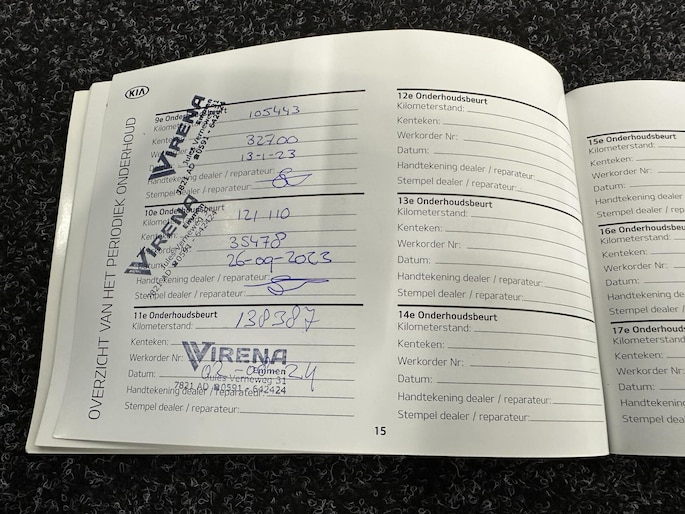 KIA
OVERZICHT VAN HET PERIODIEK ONDERHOUD
9e Onderhoudsbeurt
105443
32700
13-1-23
Handtekening dealer / reparateur:
Stempel dealer / reparateur:
VIRENA
Emmen
Jules Verneweg 31
7821 AD ☎0591 - 642424
10e Onderhoudsbeurt
121 110
35478
26-09-2023
Handtekening dealer / reparateur:
Stempel dealer / reparateur:
VIRENA
Emmen
Jules Verneweg 31
7821 AD ☎0591 - 642424
11e Onderhoudsbeurt
Kilometerstand: 138387
Kenteken:
Werkorder Nr:
Datum:
Handtekening dealer / reparateur:
Stempel dealer / reparateur:
VIRENA
Emmen
Jules Verneweg 31
7821 AD ☎0591 - 642424
12e Onderhoudsbeurt
Kilometerstand:
Kenteken:
Werkorder Nr:
Datum:
Handtekening dealer / reparateur:
Stempel dealer / reparateur:
13e Onderhoudsbeurt
Kilometerstand:
Kenteken:
Werkorder Nr:
Datum:
Handtekening dealer / reparateur:
Stempel dealer / reparateur:
14e Onderhoudsbeurt
Kilometerstand:
Kenteken:
Werkorder Nr:
Datum:
Handtekening dealer / reparateur:
Stempel dealer / reparateur:
15
15e Onderhoudsbeurt
Kilometerstand:
Kenteken:
Werkorder Nr:
Datum:
Handtekening de
Stempel dealer
16e Onderhouds
Kilometerstand:
Kenteken:
Werkorder Nr:
Datum:
Handtekening de
Stempel dealer /
17e Onderhouds
Kilometerstand:
Kenteken:
Werkorder Nr:
Datum:
Handtekening
Stempel dea